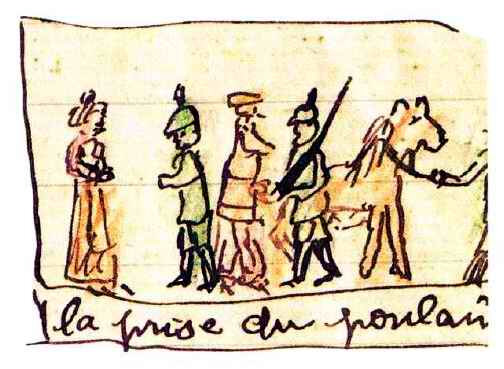 la prise du poulain